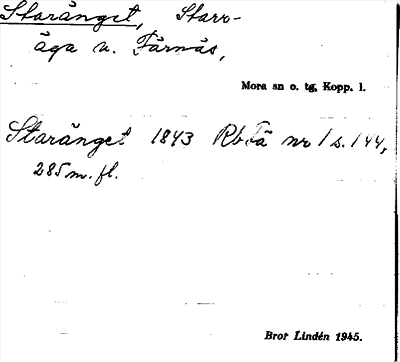 Staränget, Starr-
äga u. Färnäs,
Mora sn o. tg, Kopp. l.
Staränget 1843 Rb Fä nr 1 s. 144,
285 m. fl.
Bror Lindén 1945.